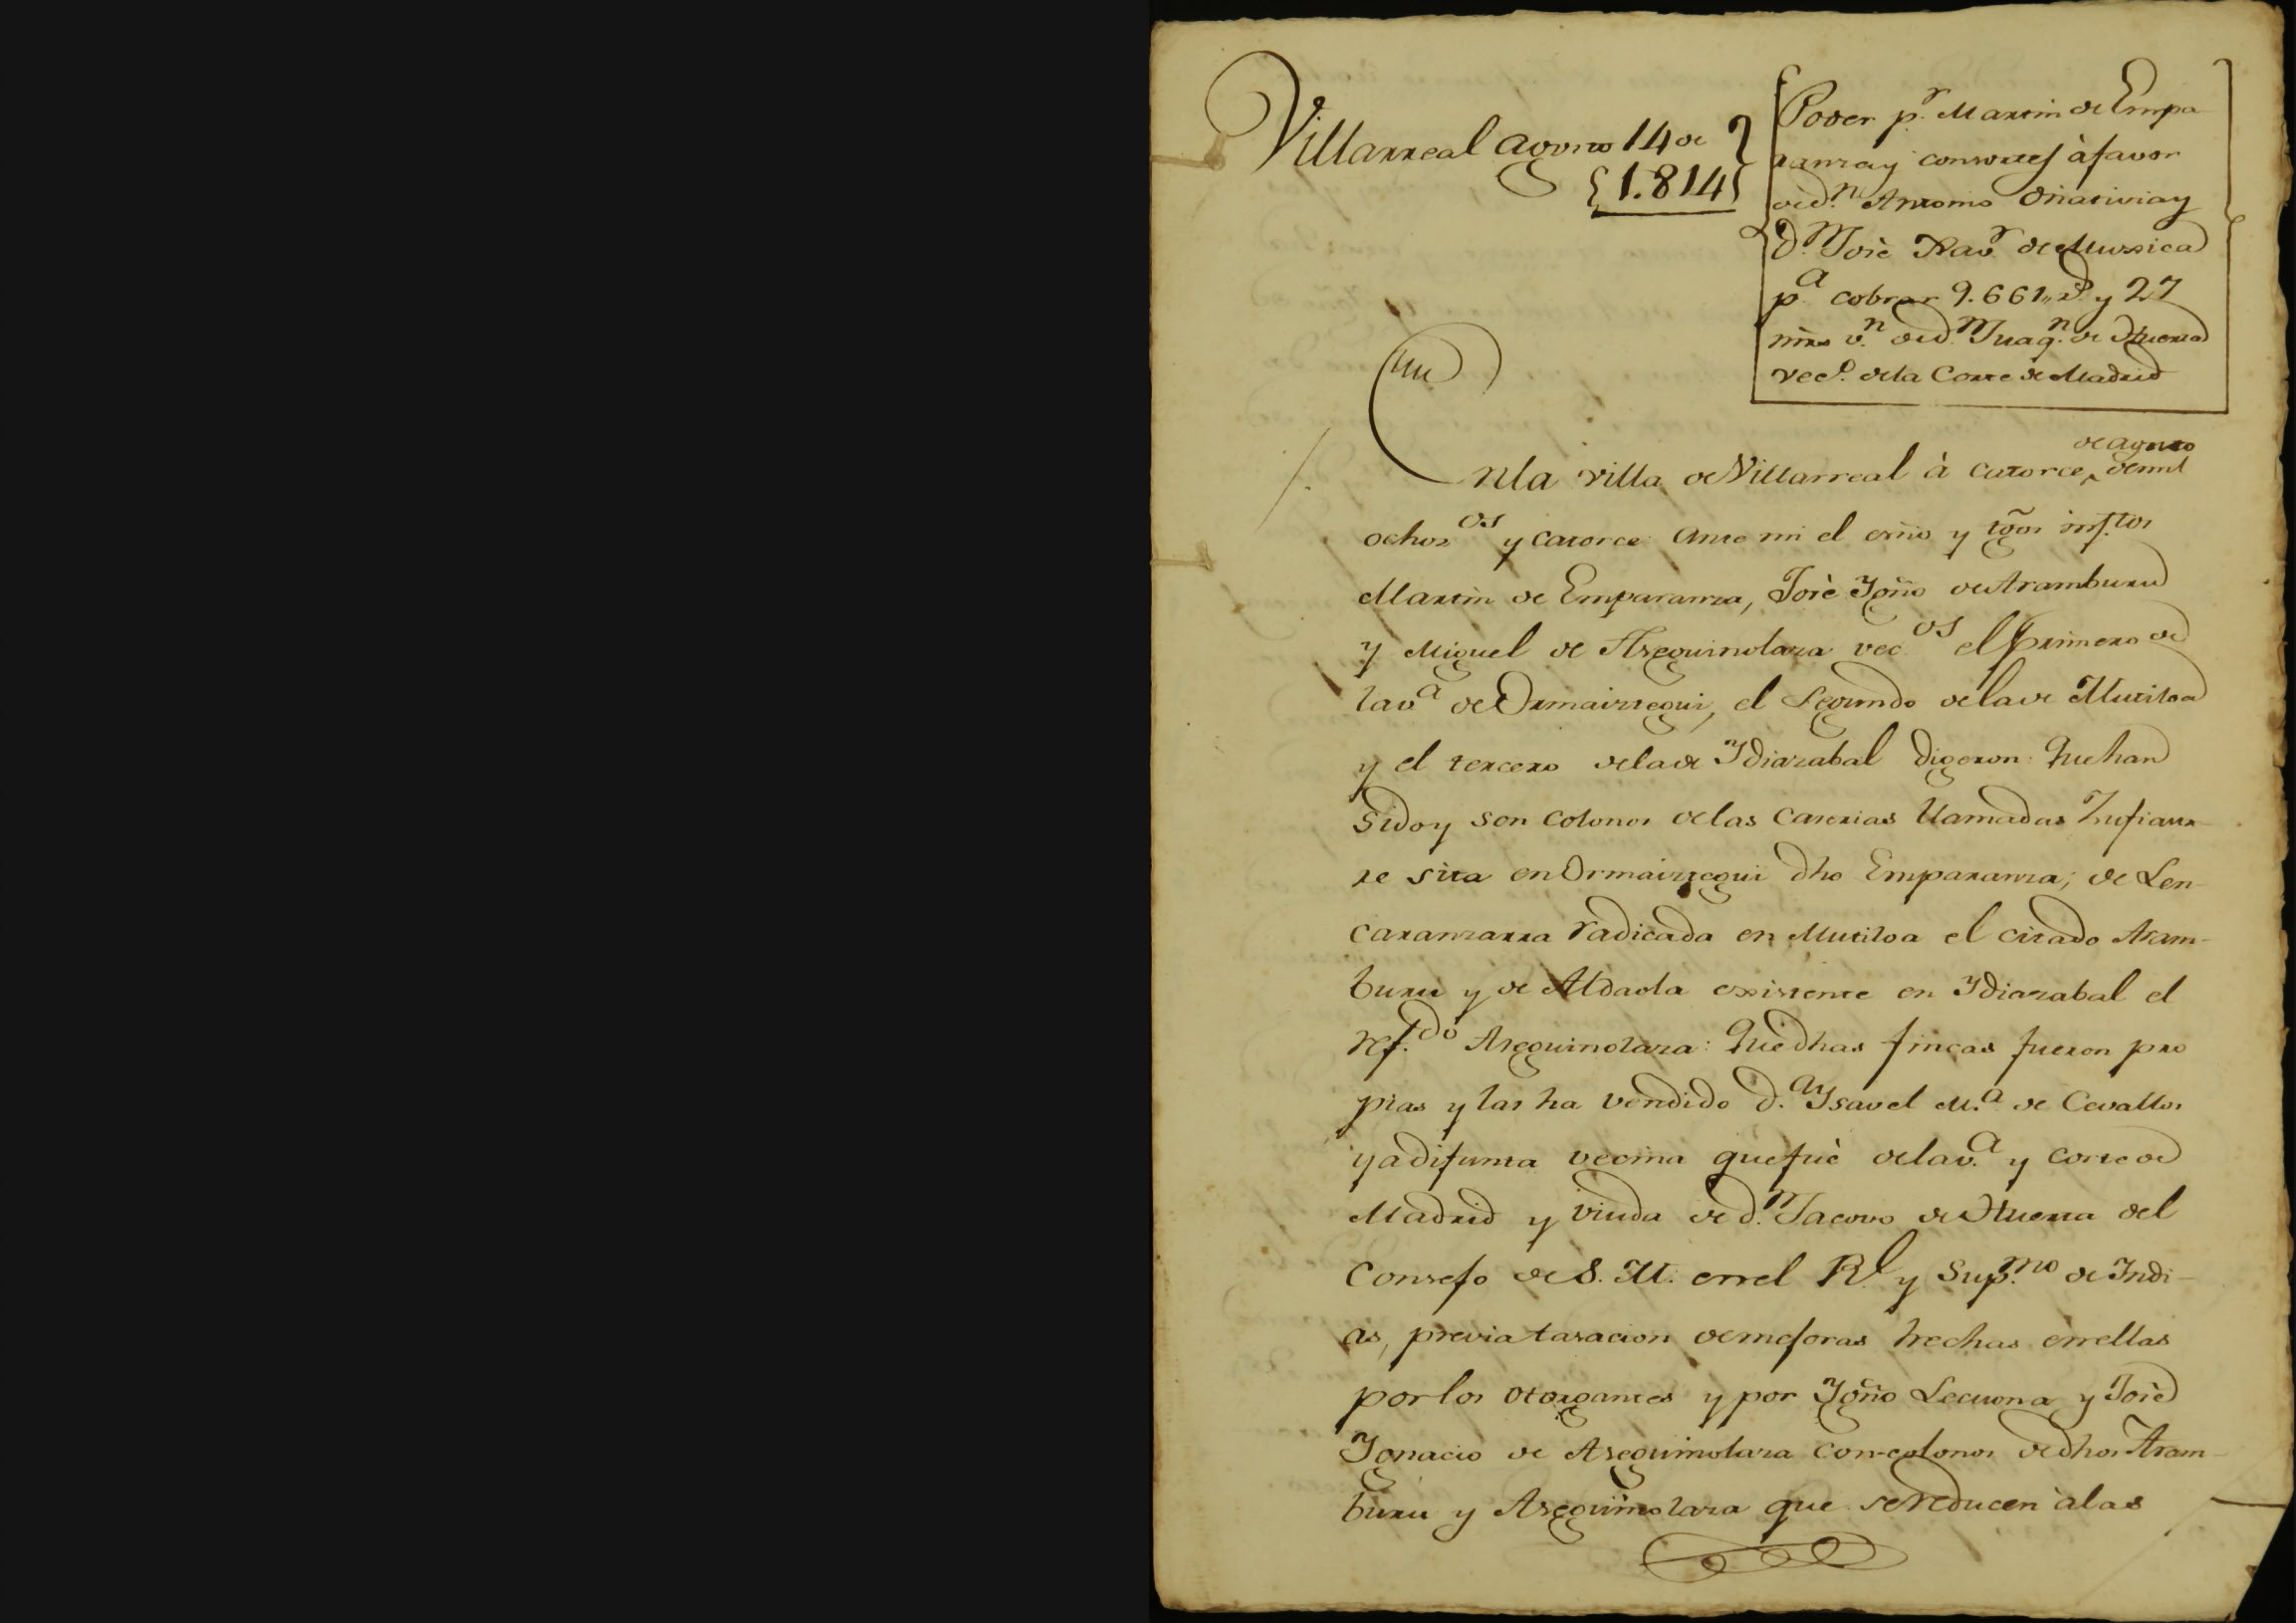 Villarreal agosto 14 de
1.814
Poder p.r Martin de Empa
ranza y consortes à favor
de d.n Antonio Oñativia y
d.n Josè Xav.r de Mussica
p.a cobrar 9.661,, r.s y 27
mrs v.n de d.n Juaq.n de Huerta
vec.o de la Corte de Madrid
de agosto
En la villa de Villarreal à catorce ^ de mil
ochoz.os y catorce ante mi el esño y tgõs inf.tos
Martin de Emparanza, Josè Ygño de Aramburu
y Miguel de Aseguinolaza vec.os el primero de
la v.a de Ormaiztegui, el segundo de la de Mutiloa
y el tercero de la de Ydiazabal digeron: Que han
sido y son colonos de las caserias llamadas Zufiaur-
re sita en Ormaiztegui dho Emparanza; de Len-
caranzarra radicada en Mutiloa el citado Aram-
buru y de Aldaola existente en Ydiazabal el
ref.do Aseguinolaza: Que dhas fincas fueron pro
pias y las ha vendido d.a Ysavel M.a de Cevallos
ya difunta vecina que fuè de la v.a y corte de
Madrid y viuda de d.n Jacovo de Huerta del
Consejo de S. M. en el R.l y Sup.mo de Indi-
as, previa tasacion de mejoras hechas en ellas
por los otorgantes y por Ygño Lecuona y Josè
Ygnacio de Aseguinolaza con-colonos de dhos Aram-
buru y Aseguinolaza que se reducen à las